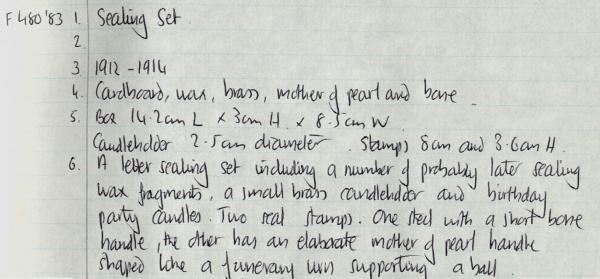 F480'83 1. Sealing Set.
2.
3. 1912-1914
4. Cardboard, wax, brass, mother of pearl and bone.
5. Box 14.2cm L x 3cm H. x 8.5cm W.
Candleholder 2.5cm diameter. Stamps 8cm and 3.6cm H.
6. A letter sealing set including a number of probably later sealing
wax fragments, a small brass candleholder and birthday
party candles. Two seal stamps. One steel with a short bone
handle, the other has an elaborate mother of pearl handle
shaped like a funerary urn supporting a ball